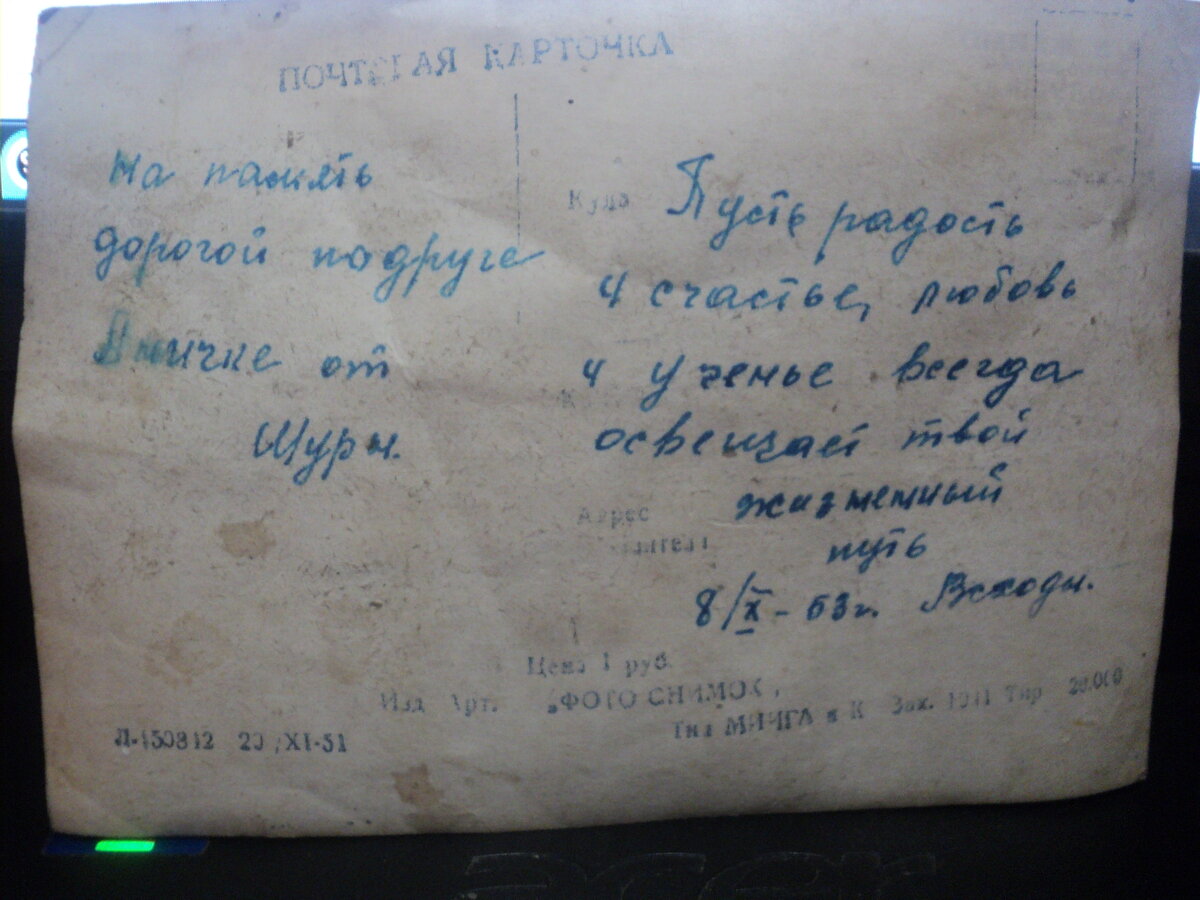 ПОЧТОВАЯ КАРТОЧКА
На память
дорогой подруге
Аничке от
Шуры.
Куда
Пусть радость
и счастье, любовь
и ученье всегда
освещает твой
жизненный
путь
8/X - 53 г. Всходы.
Адрес
Цена 1 руб.
Изд. Арт. „ФОТОСНИМОК"
Тип МИИГА и К Зак. 1011 Тир 20.000
Л-150812 20/XI-51